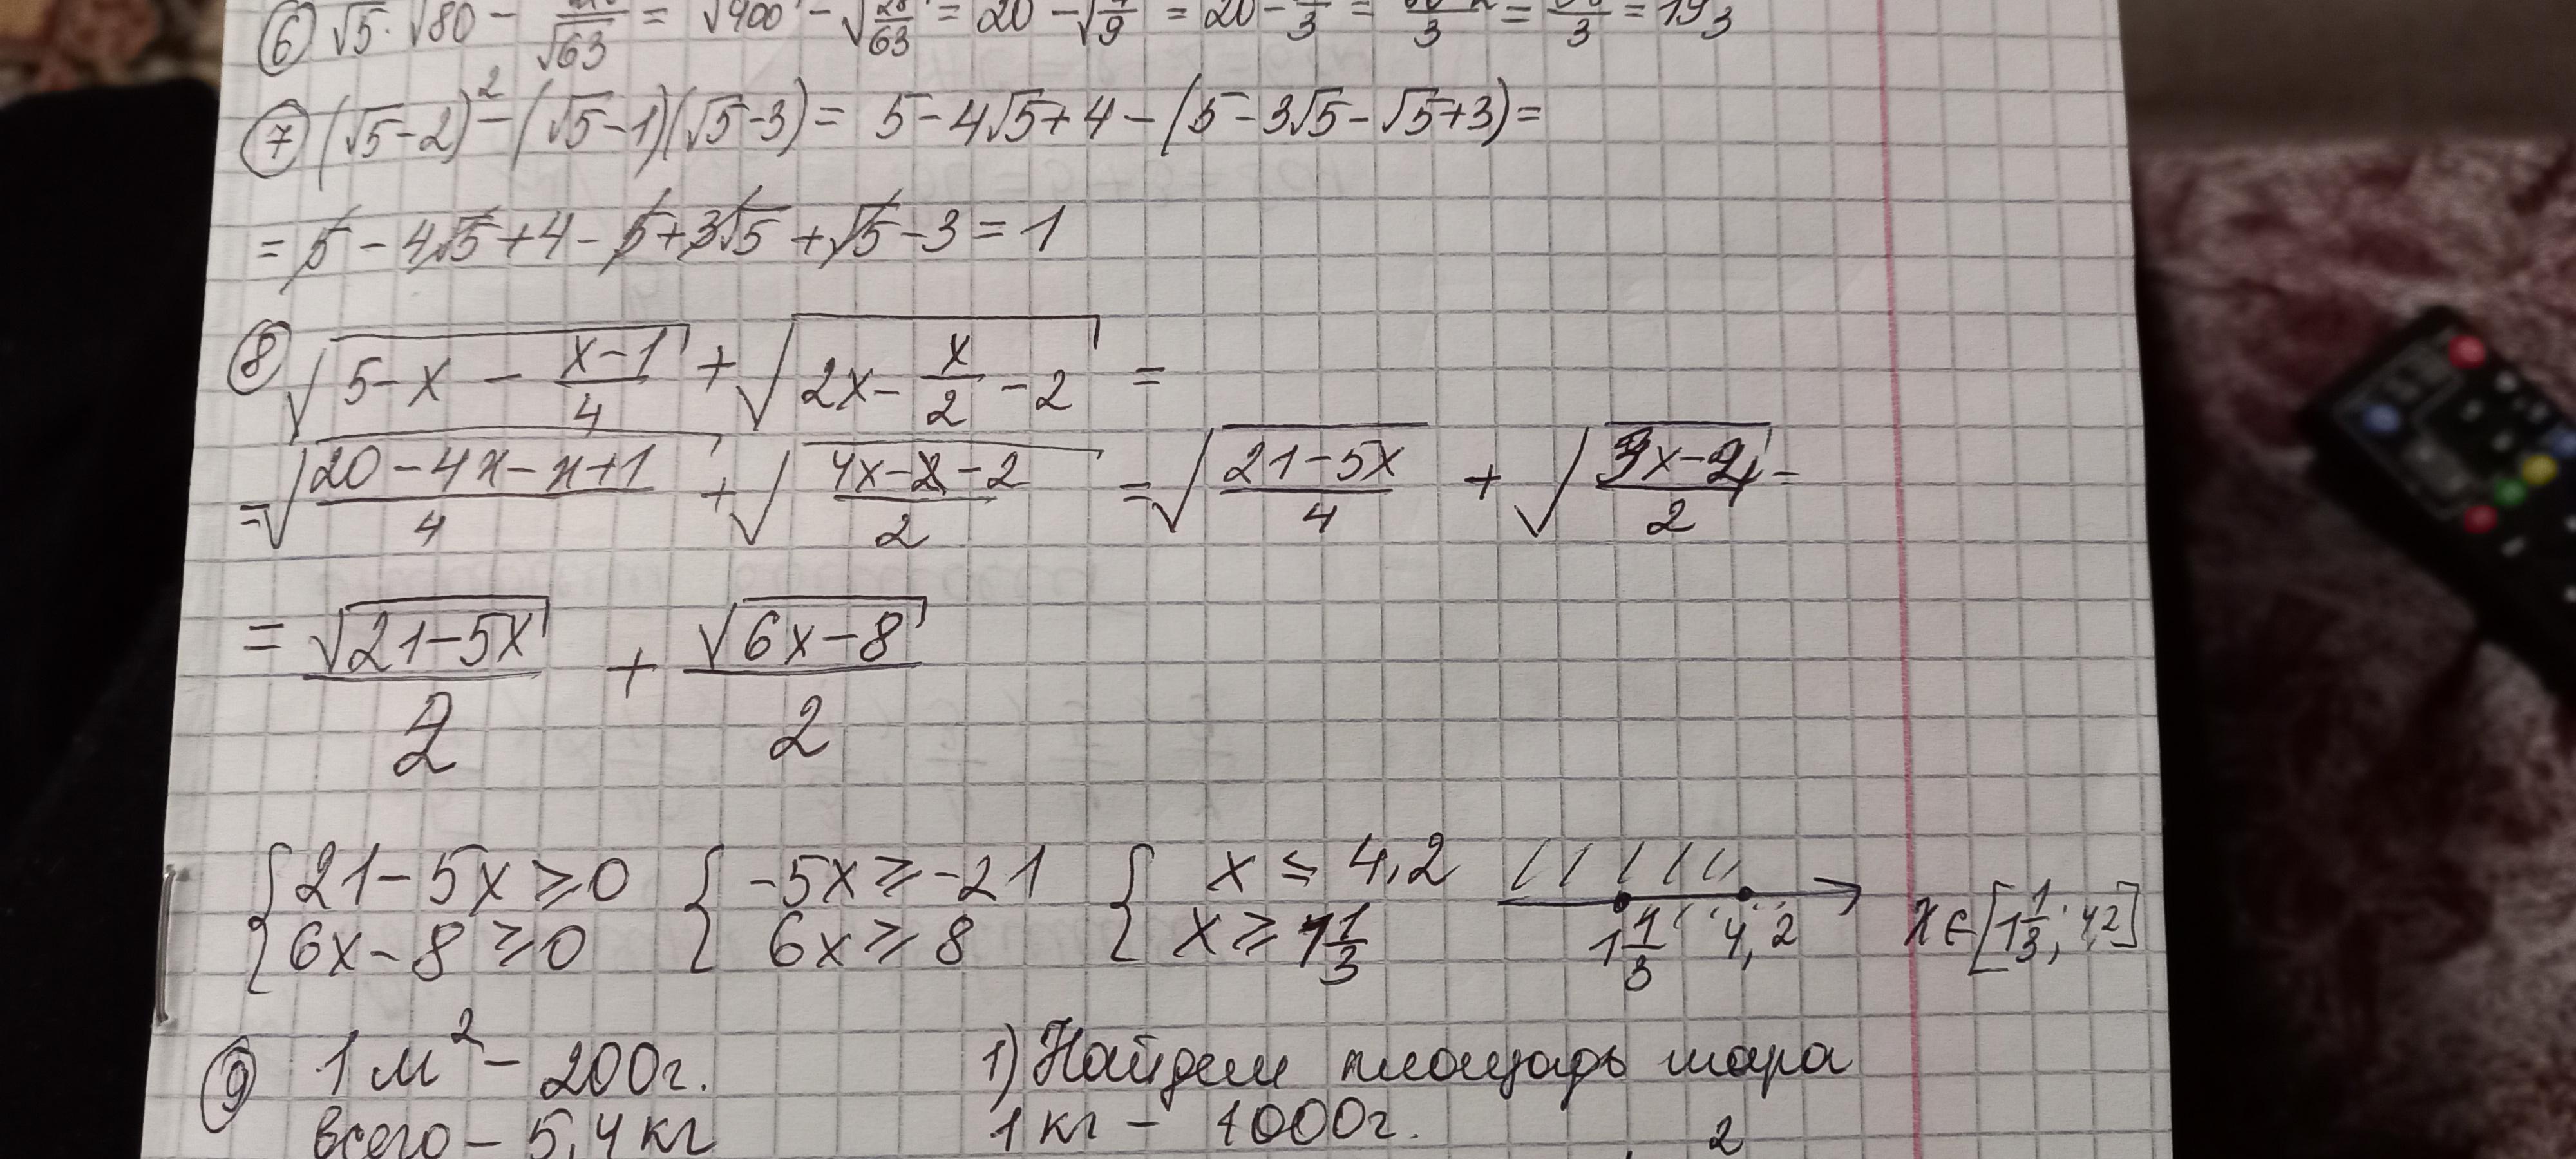 ⑥ √5·√80 − √28/√63 = √400 − √(28/63) = 20 − √(4/9) = 20 − 2/3 = (60−2)/3 = 58/3 = 19 1/3
⑦ (√5−2)² − (√5−1)(√5−3) = 5−4√5+4−(5−3√5−√5+3)=
= 5−4√5+4−5+3√5+√5−3=1
⑧ √(5−x − (x−1)/4) + √(2x− x/2 −2) =
=√((20−4x−x+1)/4) + √((4x−x−2)/2) = √((21−5x)/4) + √((3x−4)/2) =
= √(21−5x)/2 + √(6x−8)/2
{21−5x ⩾0 {−5x ⩾ −21 { x ⩽ 4,2
{6x−8 ⩾0 { 6x ⩾ 8 { x ⩾ 1 1/3 1 1/3 4,2 x∈[1 1/3; 4,2]
⑨ 1 м² − 200г. 1) Найдем площадь шара
всего − 5,4 кг 1 кг − 1000г.
2